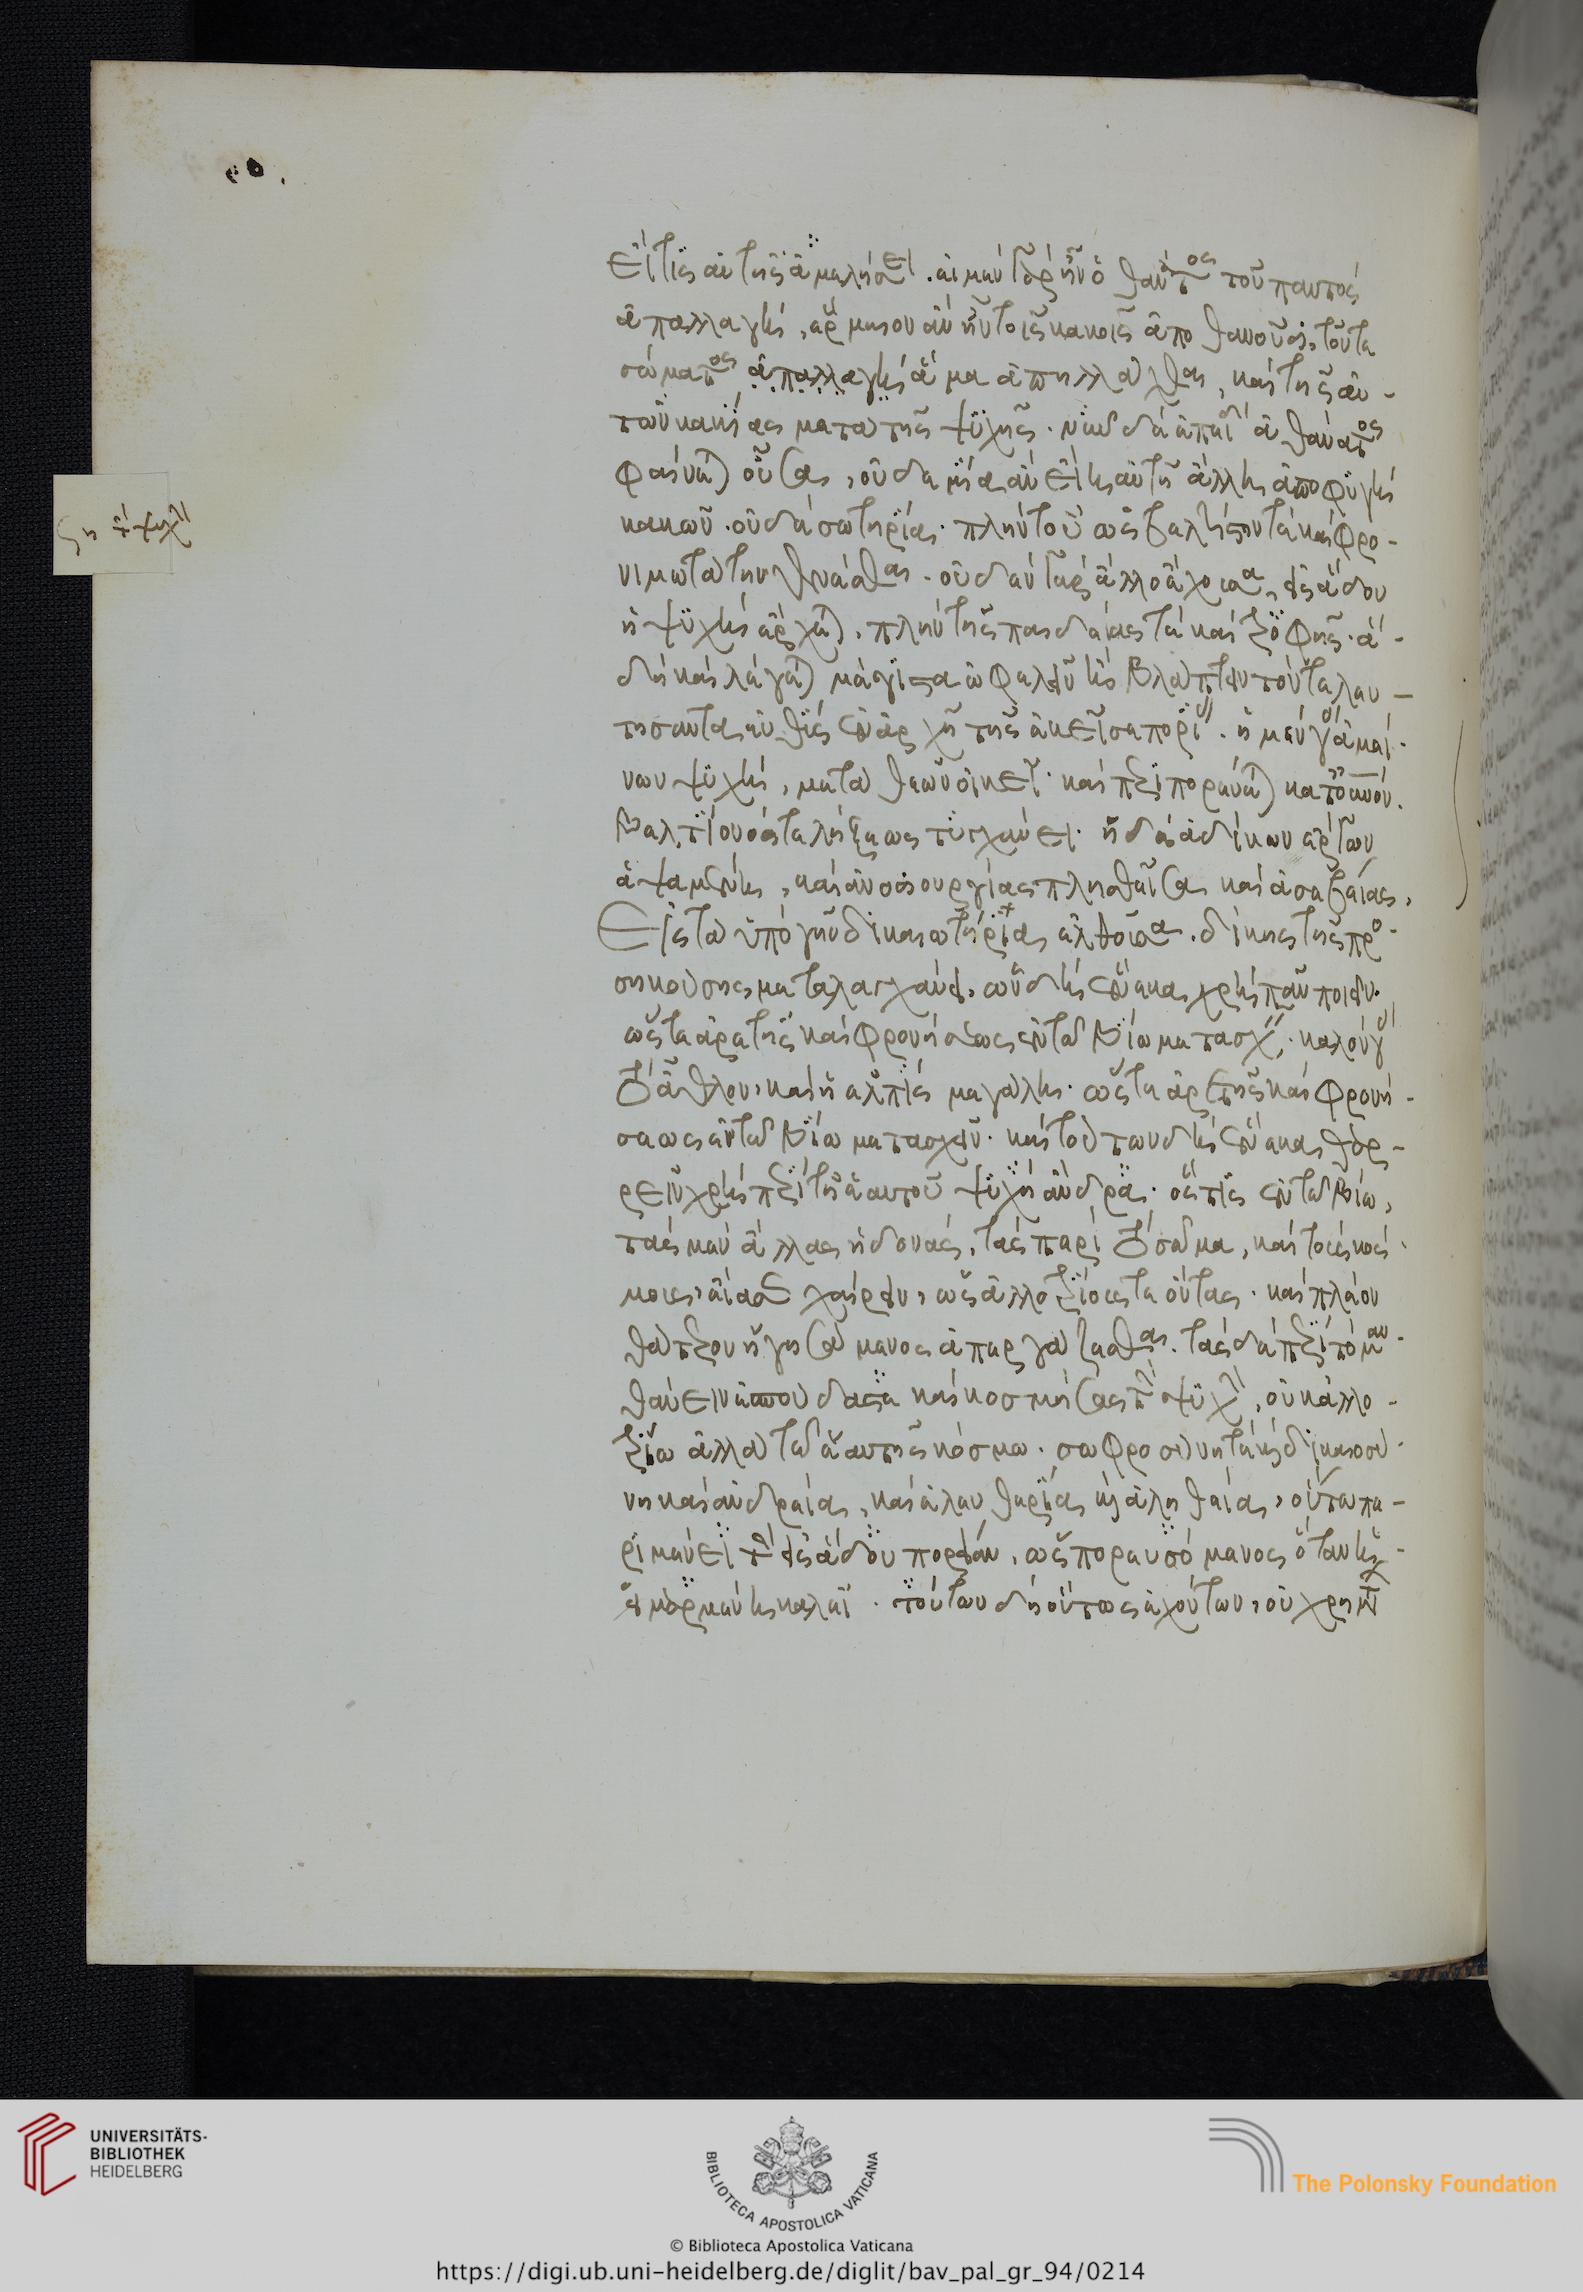 εἴ τις αὐτῆς ἀμελήσει. εἰ μὲν γὰρ ἦν ὁ θάνατος τοῦ παντὸς
ἀπαλλαγὴ, ἕρμαιον ἂν ἦν τοῖς κακοῖς ἀποθανοῦσι, τοῦ τε
σώματος ἀπαλλαγὴ ἅμα ἀπηλλάχθαι, καὶ τῆς αὐ-
τῶν κακίας μετὰ τῆς ψυχῆς. νῦν δὲ ἐπειδὴ ἀθάνατος
φαίνεται οὖσα, οὐδεμία ἂν εἴη αὐτῇ ἄλλη ἀποφυγὴ
κακῶν. οὐδὲ σωτηρία. πλὴν τοῦ ὡς βελτίστην τὲ καὶ φρο-
νιμωτάτην γενέσθαι. οὐδὲν γὰρ ἄλλο ἔχουσα, εἰς ἅδου
ἡ ψυχὴ ἔρχεται, πλὴν τῆς παιδείας τὲ καὶ τροφῆς. ἃ
δὴ καὶ λέγεται μέγιστα ὠφελεῖν ἢ βλάπτειν τὸν τελευ-
τήσαντα εὐθὺς ἐν ἀρχῇ τῆς ἐκεῖσε πορείας. ἡ μὲν γὰρ ἀμεί-
νων ψυχὴ, μετὰ θεῶν οἰκεῖ. καὶ περιπορεύεται κατ' οὐνόν.
βελτίονός τε λήξεως τυγχάνει. ἡ δὲ ἀδίκων ἔργων
ἁψαμένη, καὶ ἀνοσιουργίας πλησθεῖσα καὶ ἀσεβείας,
εἰς τὰ ὑπὸ γῆν δικαιωτήρια ἐλθοῦσα. δίκης τῆς προ-
σηκούσης μεταλαγχάνει. ὧν δὴ ἕνεκα χρὴ πᾶν ποιεῖν.
ὥστε ἀρετῆς καὶ φρονήσεως ἐν τῷ βίῳ μετασχεῖν. καλὸν γὰρ
τὸ ἆθλον, καὶ ἡ ἐλπὶς μεγάλη. ὥστε ἀρετῆς καὶ φρονή-
σεως ἐν τῷ βίῳ μετασχεῖν. καὶ τούτων δὴ ἕνεκα θαρ-
ρεῖν χρὴ περὶ τῇ ἑαυτοῦ ψυχῇ ἄνδρα. ὅστις ἐν τῷ βίῳ,
τὰς μὲν ἄλλας ἡδονὰς, τὰς περὶ τὸ σῶμα, καὶ τοὺς κόσ-
μους, εἴασε χαίρειν, ὡς ἀλλοτρίους τε ὄντας. καὶ πλέον
θάτερον ἡγησάμενος ἀπεργάζεσθαι. τὰς δὲ περὶ τὸ μαν-
θάνειν ἐσπούδασε καὶ κοσμήσας τὴν ψυχὴν, οὐκ ἀλλο-
τρίῳ ἀλλὰ τῷ ἑαυτῆς κόσμῳ. σωφροσύνῃ τὲ καὶ δικαιοσύ-
νῃ καὶ ἀνδρείᾳ, καὶ ἐλευθερίᾳ καὶ ἀληθείᾳ, οὕτω πε-
ριμένει τὴν εἰς ἅδου πορείαν, ὡς πορευσόμενος ὅταν ἡ
εἱμαρμένη καλεῖ. τούτων δὴ οὕτως ἐχόντων, οὐ χρὴ
UNIVERSITÄTS-
BIBLIOTHEK
HEIDELBERG
BIBLIOTECA APOSTOLICA VATICANA
The Polonsky Foundation
© Biblioteca Apostolica Vaticana
https://digi.ub.uni-heidelberg.de/diglit/bav_pal_gr_94/0214